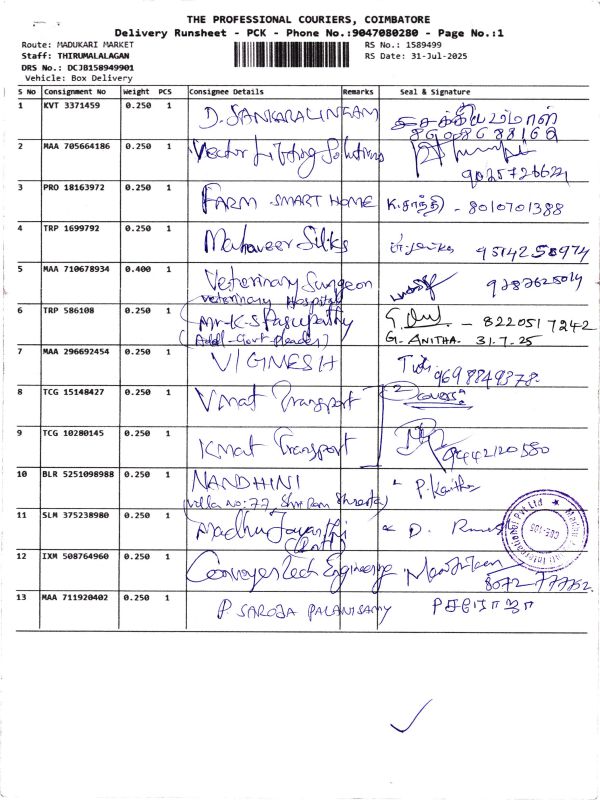 THE PROFESSIONAL COURIERS, COIMBATORE
Delivery Runsheet - PCK - Phone No.:9047080280 - Page No.:1
Route: MADUKARI MARKET
Staff: THIRUMALALAGAN
DRS No.: DCJ8158949901
Vehicle: Box Delivery
RS No.: 1589499
RS Date: 31-Jul-2025
S No Consignment No Weight PCS Consignee Details Remarks Seal & Signature
1 KVT 3371459 0.250 1 D. SANKARALINGAM
8608688168
2 MAA 705664186 0.250 1 Vector Lifting Solutions
9025726621
3 PRO 18163972 0.250 1 FARM SMART HOME K.சாந்தி - 8010701388
4 TRP 1699792 0.250 1 Mahaveer Silks 9514258974
5 MAA 710678934 0.400 1 Veterinary Surgeon
Veterinary Hospital
6 TRP 586108 0.250 1 Mr-K-S Pasupathy - 8220517242
(Addl-Govt pleader) G. ANITHA. 31.7.25
7 MAA 296692454 0.250 1 VIGNESH
9698849378
8 TCG 15148427 0.250 1 Vmat Transport 2 covers
9 TCG 10280145 0.250 1 KMat Transport 9442120580
10 BLR 5251098988 0.250 1 NANDHINI P. Kavitha
(villa no: 77, Shri Ram
11 SLM 375238980 0.250 1 Madhu Jayanthi D.
12 IXM 508764960 0.250 1 ConveyerTech Engineering
8072-77752
13 MAA 711920402 0.250 1 P. SAROJA PALANISAMY P சரோஜா